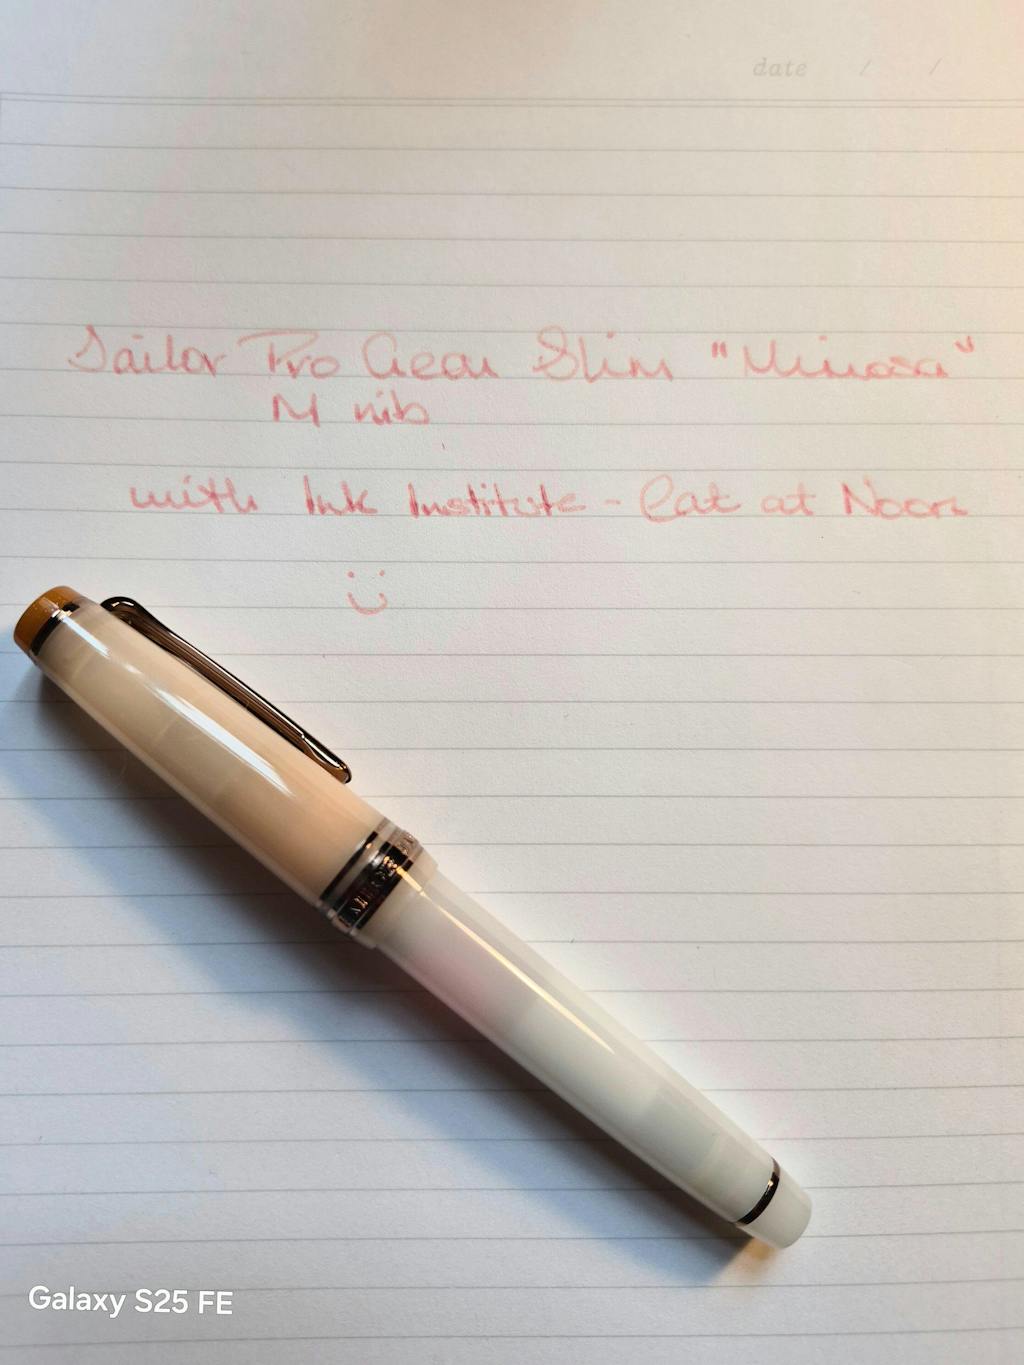 date / /
Sailor Pro Gear Slim "Mimosa"
M nib
with Ink Institute - Cat at Noon
Galaxy S25 FE